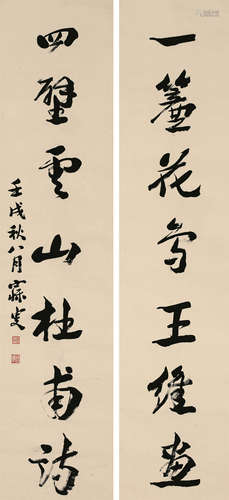 一簾花鳥王維畫
四壁雲山杜甫詩
壬戌秋八月 寐叟